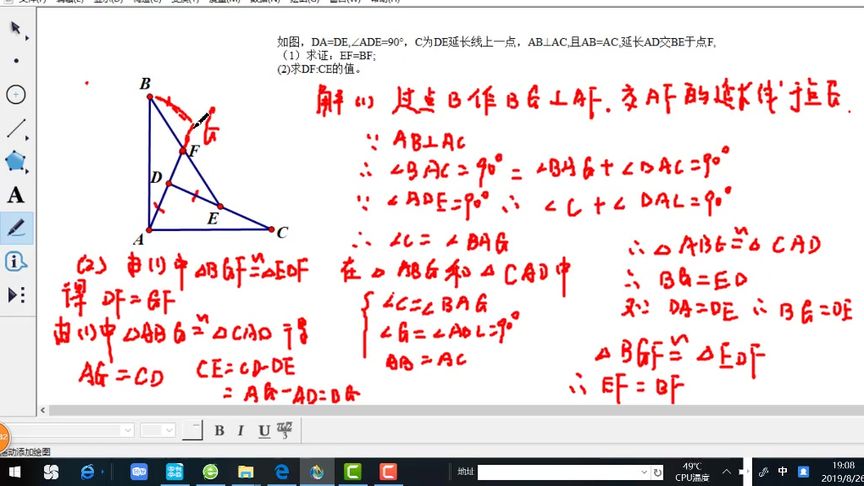 如图，DA=DE,∠ADE=90°，C为DE延长线上一点，AB⊥AC,且AB=AC,延长AD交BE于点F,
（1）求证：EF=BF;
(2)求DF:CE的值。
解(1) 过点B作BG⊥AF.交AF的延长线于点G
∵ AB⊥AC
∴ ∠BAC=90°=∠BAG+∠DAC=90°
∵ ∠ADE=90° ∴ ∠C+∠DAC=90°
∴ ∠C=∠BAG
在△ABG和△CAD中
∠C=∠BAG
∠G=∠ADC=90°
AB=AC
∴△ABG≌△CAD
∴ BG=ED
又∵ DA=DE ∴BG=DE
△BGF≌△EDF
∴ EF=BF
(2) 由(1)中△BGF≌△EDF
得 DF=GF
由(1)中△ABG≌△CAD 得
AG=CD CE=CD-DE
=AG-AD=DG
B
G
F
D
E
A
C
A
B I U
地址
49℃
CPU温度
中
19:08
2019/8/26